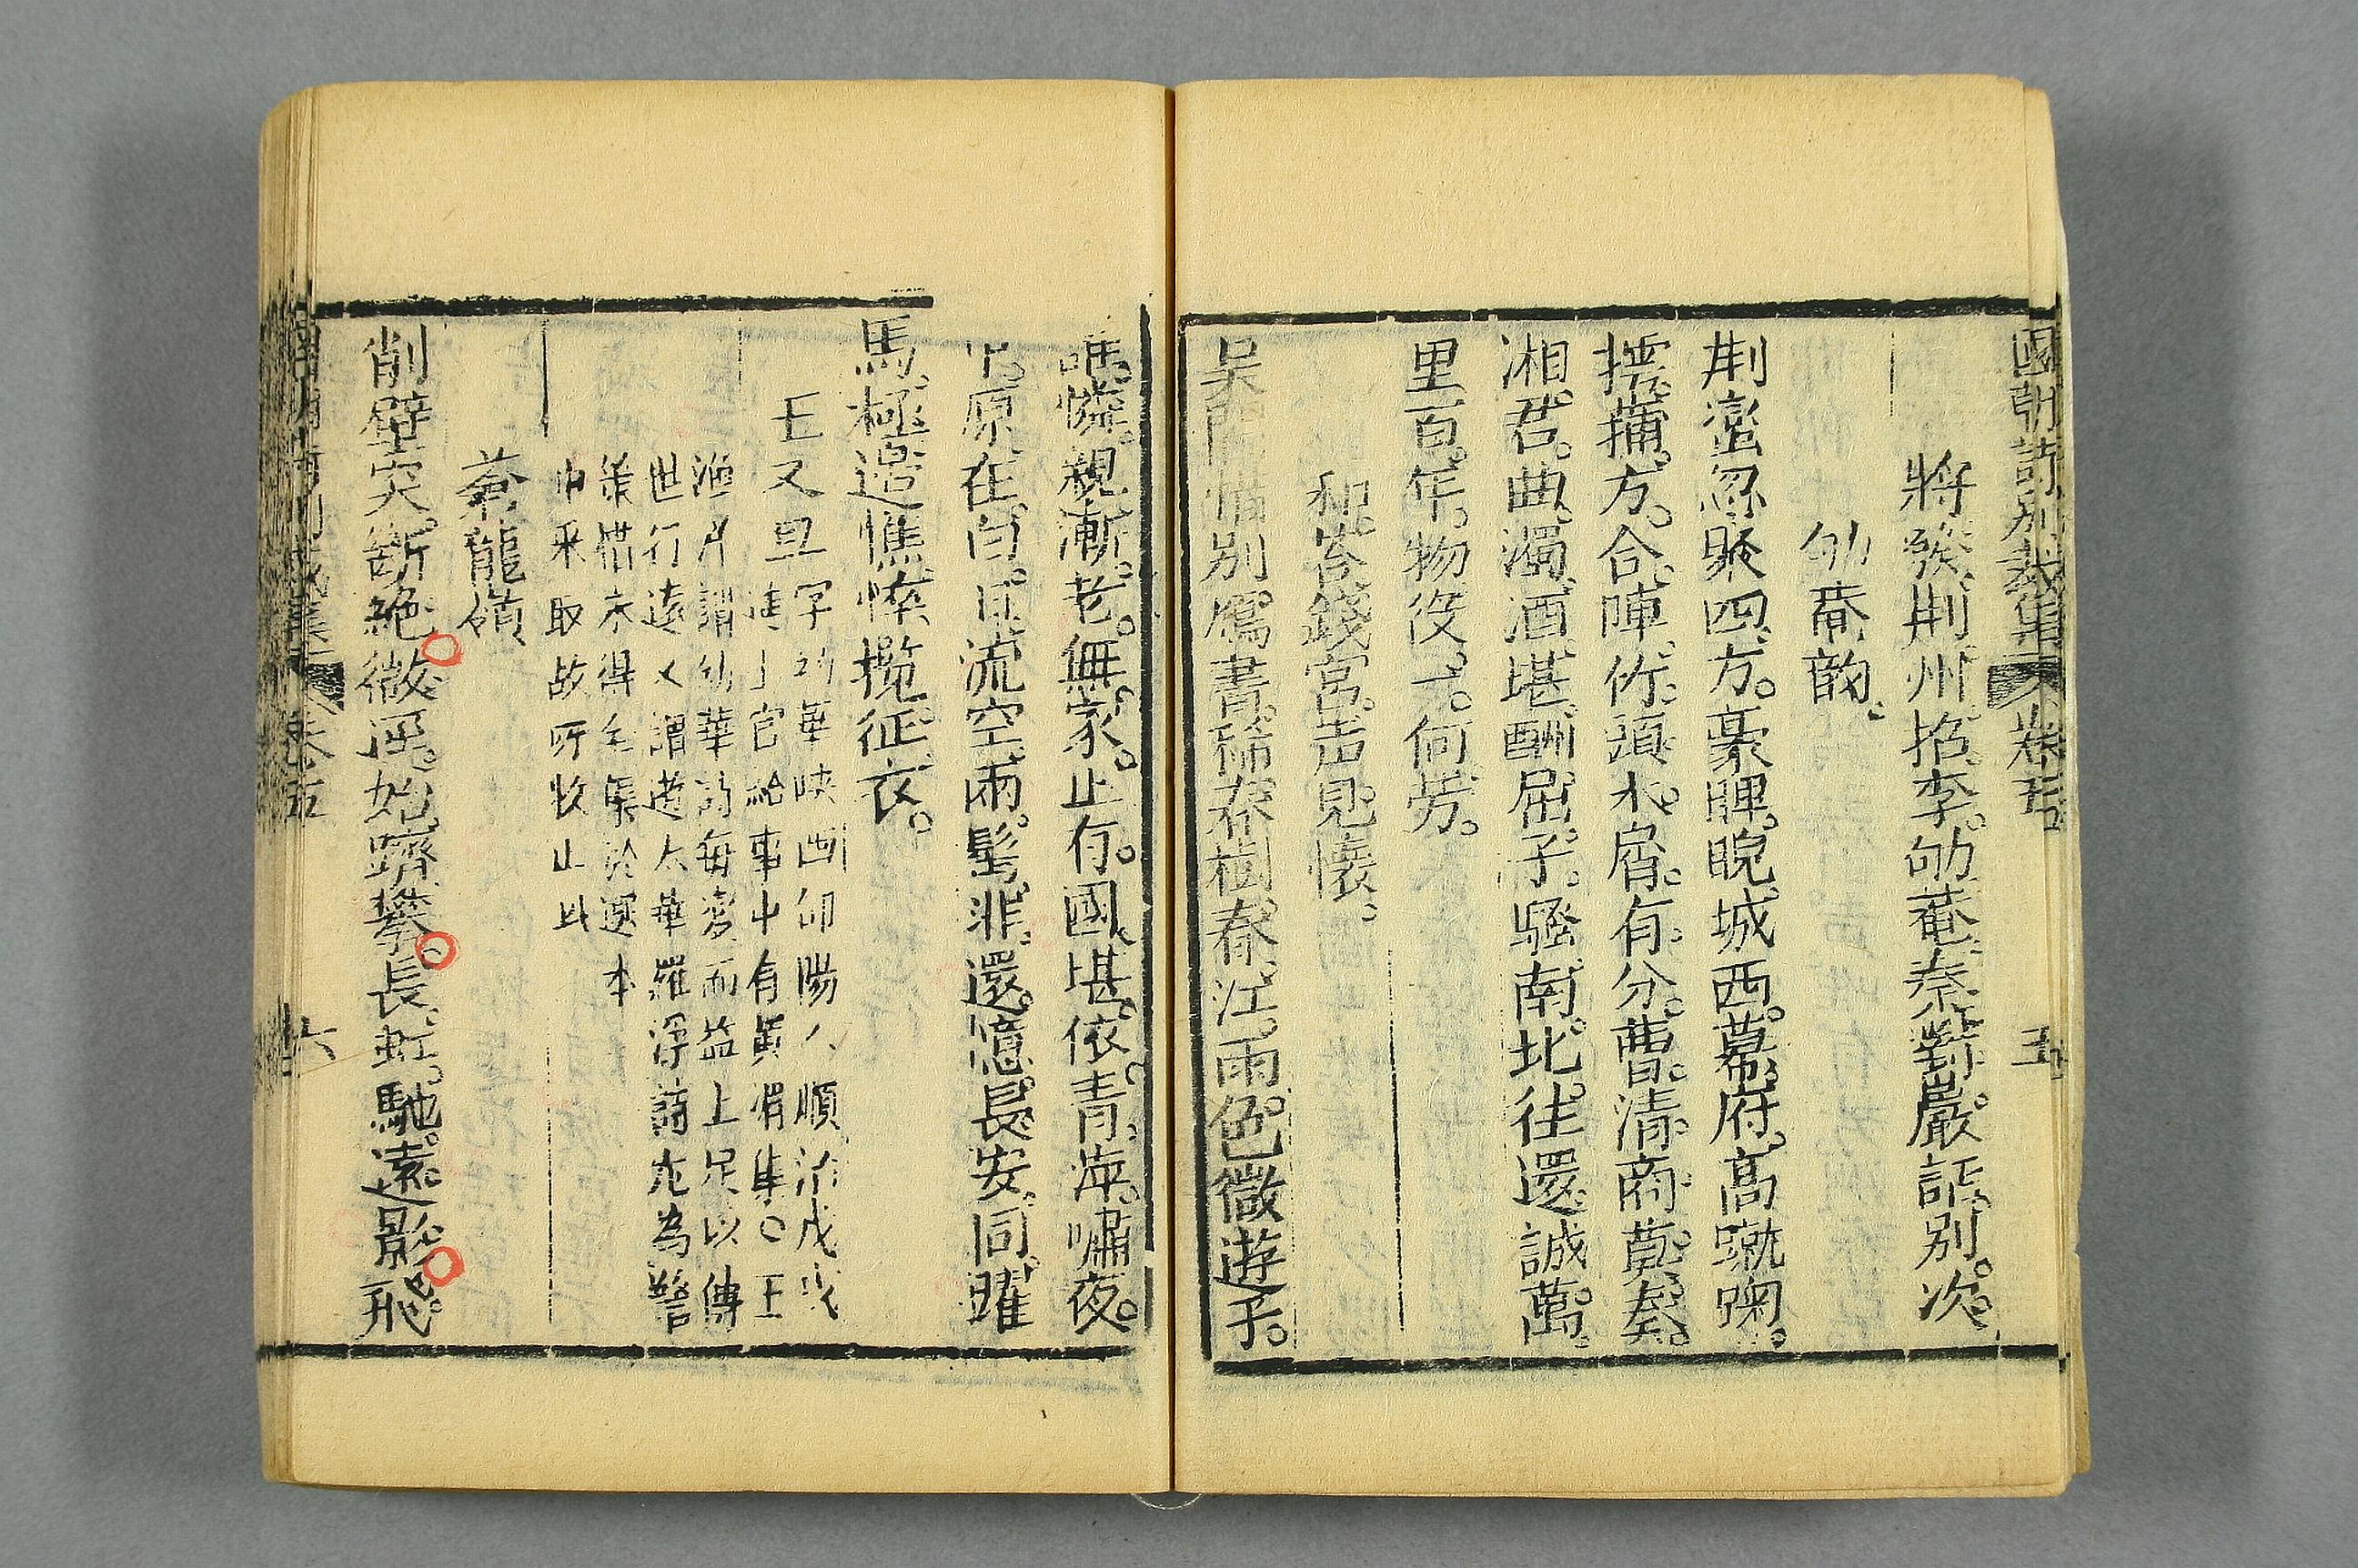 國朝詩別裁集 卷五 五
將發荊州招李劬菴秦對巖話別次
劬菴韻
荆蠻忽聚四方豪睥睨城西幕府高蹴踘
摴蒱方合陣竹頭木屑有分曹清商莫奏
湘君曲濁酒堪酬屈子騷南北往還誠萬
里百年物役一何勞
和荅錢宮声見懷
吴閶惜別鴈書稀春樹春江雨色微遊子
憐親漸老無家止有國堪依青海嘯夜
原在白日流空兩鬂非還憶長安同躍
馬極邉憔悴攬征衣
王又旦字幼華陝西郃陽人順治戊戌
進士官給事中有黃湄集〇王
漁洋謂幼華詩每變而益上足以傳
世行遠又謂過太華羅浮詩尤為警
策惜未得全集於選本
中采取故所收止此
蒼龍嶺
削壁突斷絶微徑始躋攀長虹馳遠影飛
卷五 六